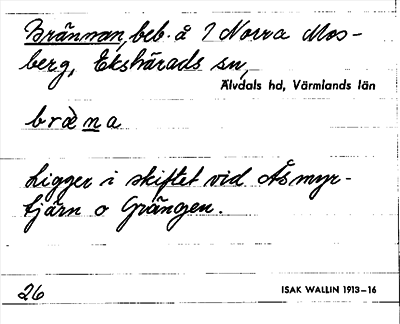 Brännan, beb. å ? Norra Mos-
berg, Ekshärads sn,
Älvdals hd, Värmlands län
bræ̀na
Ligger i skiftet vid Åsmyr-
tjärn o Grängen.
26
ISAK WALLIN 1913–16